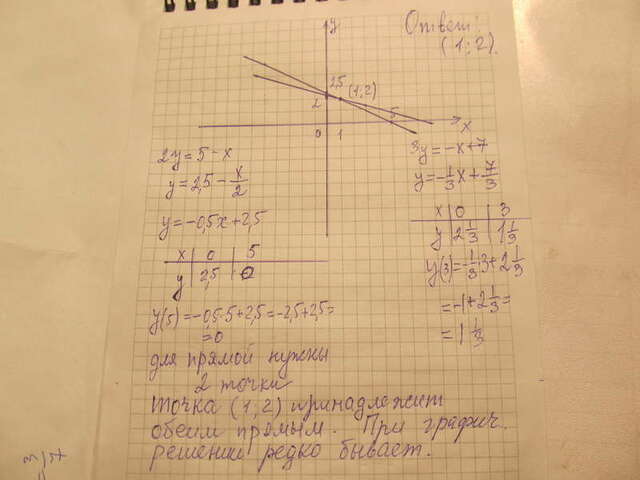 Ответ:
(1; 2).
y
2,5
(1; 2)
2
5
0
1
x
2y = 5 - x
y = 2,5 - x/2
y = -0,5x + 2,5
x | 0 | 5
y | 2,5 | 0
y(5) = -0,5·5 + 2,5 = -2,5 + 2,5 =
= 0
для прямой нужны
2 точки
3y = -x + 7
y = -1/3 x + 7/3
x | 0 | 3
y | 2 1/3 | 1 1/3
y(3) = -1/3·3 + 2 1/3
= -1 + 2 1/3 =
= 1 1/3
точка (1; 2) принадлежит
обеим прямым. При графич.
решении редко бывает.